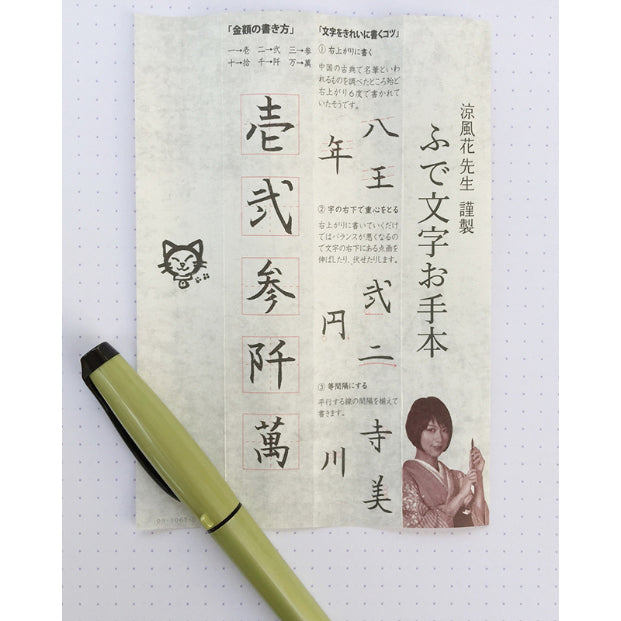 涼風花 先生 謹製
ふで文字お手本
「文字をきれいに書くコツ」
① 右上がりに書く
中国の古典で名筆といわ
れるものを調べたところ殆ど
右上がり6度で書かれて
いたそうです。
八王
年
② 字の右下で重心をとる
右上がりに書いていくだけ
ではバランスが悪くなるの
で文字の右下にある点画を
伸ばしたり、伏せたりします。
弐二
円
③ 等間隔にする
平行する線の間隔を揃えて
書きます。
寺美
川
「金額の書き方」
一→壱 二→弐 三→参
十→拾 千→阡 万→萬
壱
弐
参
阡
萬